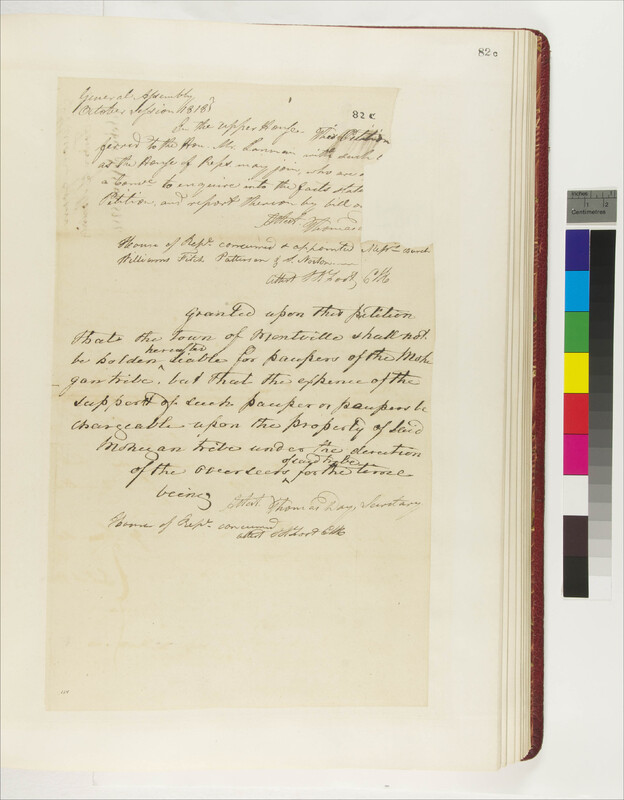 82c
General Assembly
October Session 1818
82 c
In the upper House. This Petition
ferred to the Hon. Mr. Lanman with such
as the House of Reps may join, who are
a Comee. to enquire into the facts state
Petition, and report thereon by bill or
Attest Thomas
House of Reps. concurred & appointed Messrs.
Williams Fitch Patterson & Norton
attest Clk
Granted upon this petition
that the town of Montville shall not
be holden hereafter liable for paupers of the Mohe
gan tribe, but that the expence of the
support of such pauper or paupers be
chargeable upon the property of said
Mohegan tribe under the direction
of the overseers of said tribe for the time
being
Attest. Thomas Day, Secretary
House of Reps. concurred
attest Clk